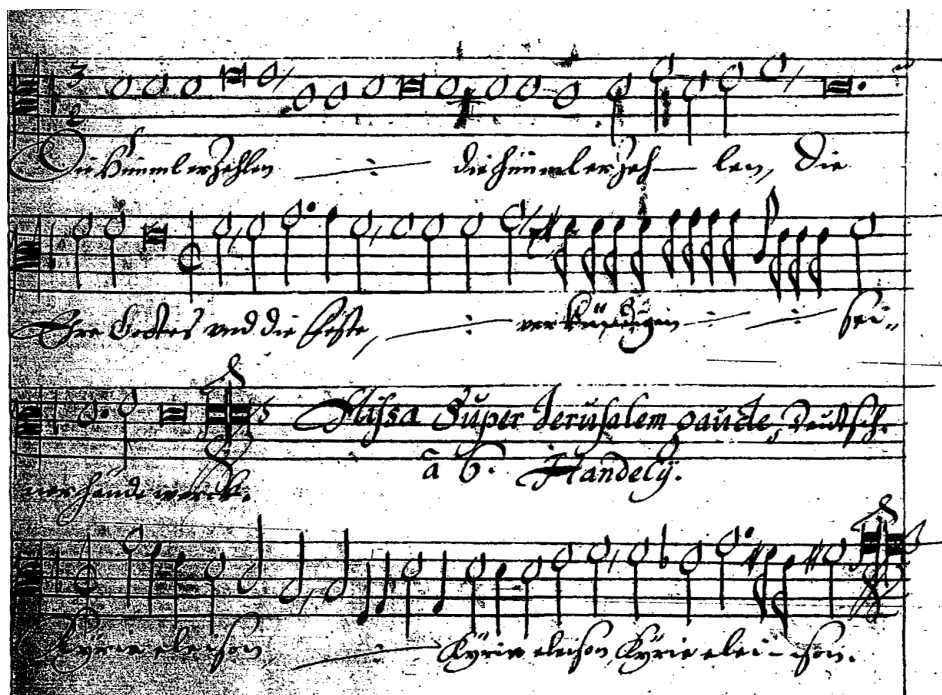 Die Himml erzehlen die himml erzeh- len, Die
Ehre Gottes und die feste, verkündigen sei-
Missa Super Jerusalem gaude, Deutsch.
à 6. Handely.
ner hände werck.
Kyrie eleison, Kyrie eleison, Kyrie elei- son.